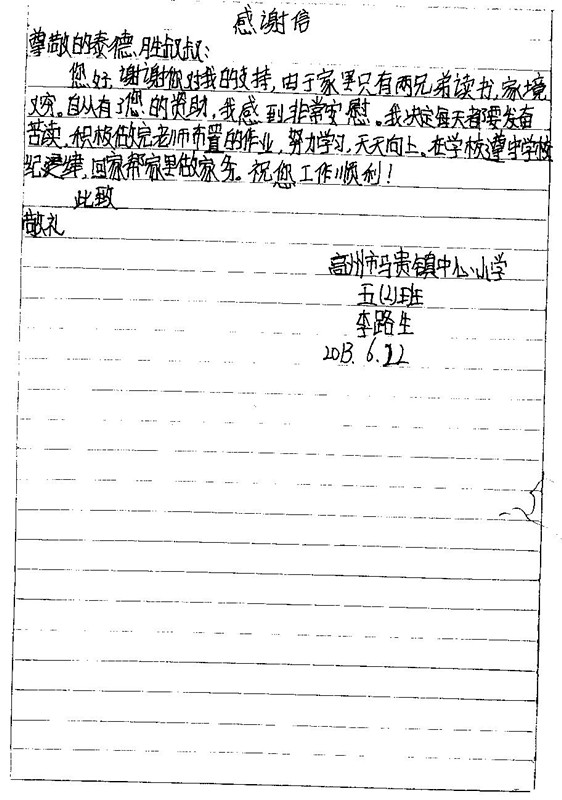 感谢信
尊敬的泰德胜叔叔：
您好，谢谢你对我的支持，由于家里只有两兄弟读书，家境
又穷。自从有了您的资助，我感到非常安慰。我决定每天都要发奋
苦读，积极做完老师布置的作业，努力学习，天天向上。在学校遵守学校
纪律，回家帮家里做家务。祝您工作顺利！
此致
敬礼
高州市马贵镇中心小学
五(2)班
李路生
2013.6.12